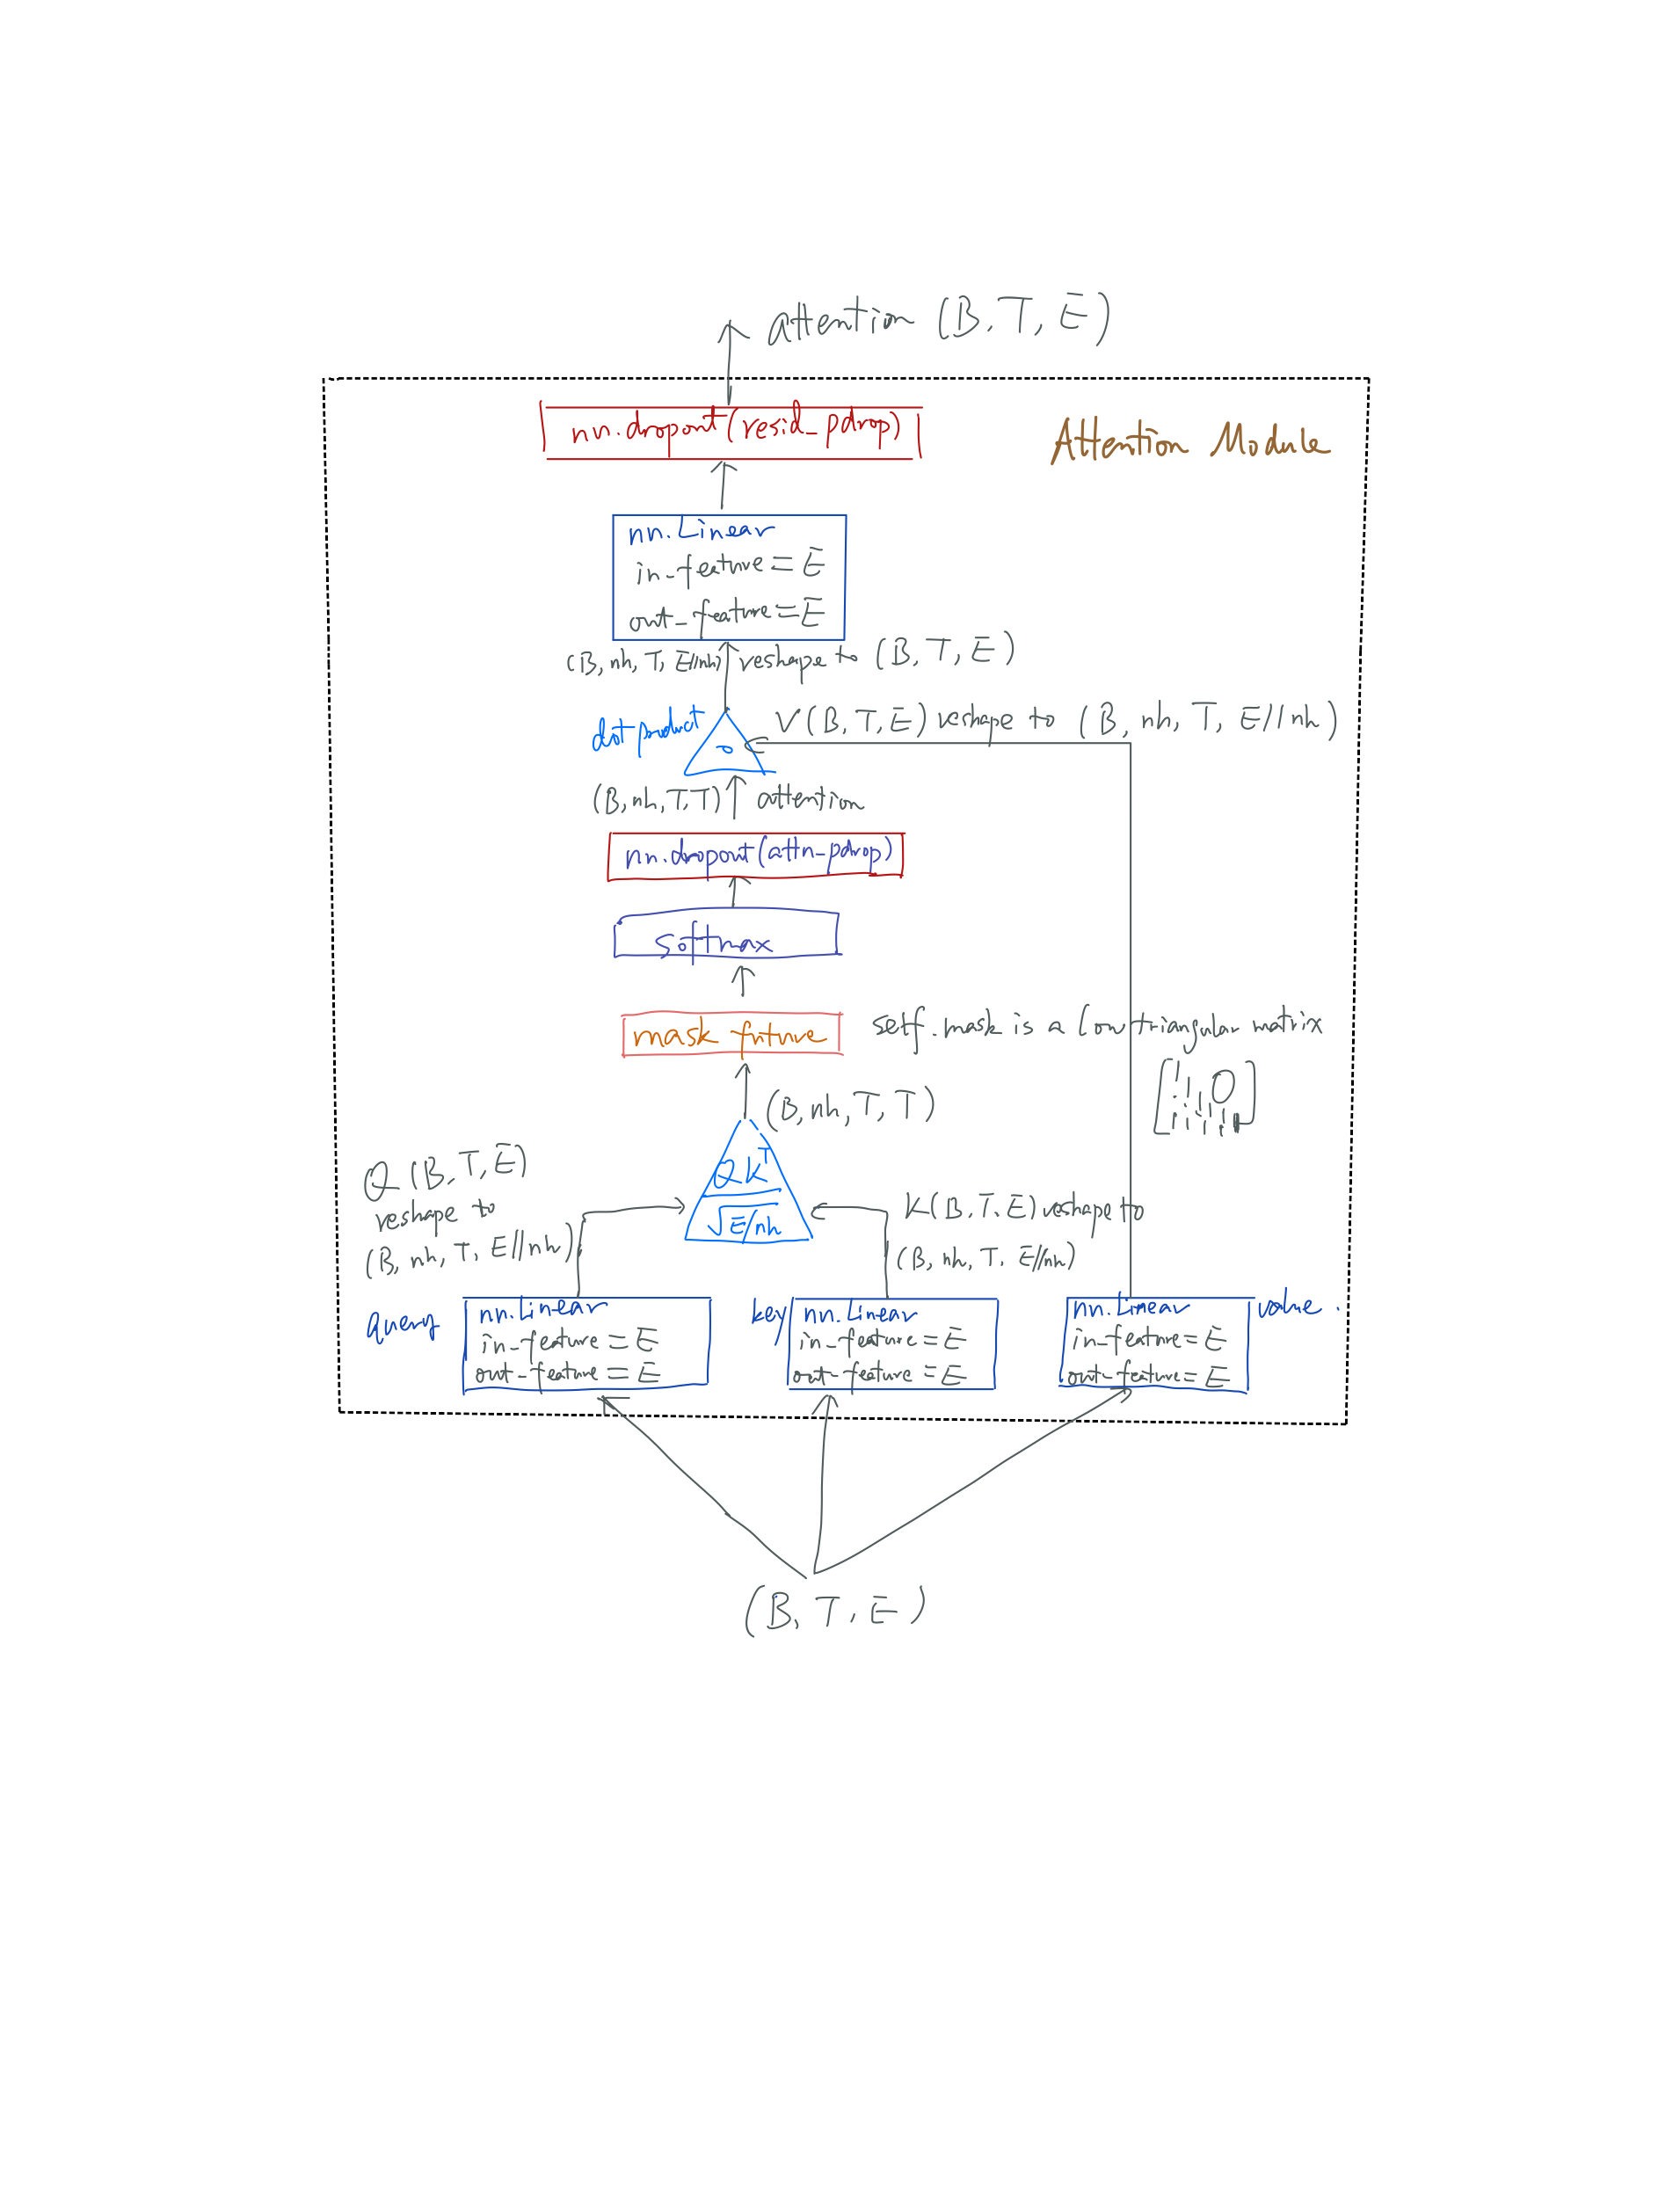 attention (B, T, E)
nn.dropout(resid_pdrop)
Attention Module
nn.Linear
in_feature = E
out_feature = E
(B, nh, T, E//nh) reshape to (B, T, E)
dot product
V (B, T, E) reshape to (B, nh, T, E//nh)
(B, nh, T, T) attention
nn.dropout(attn_pdrop)
softmax
mask future
self.mask is a low triangular matrix
(B, nh, T, T)
Q (B, T, E)
reshape to
(B, nh, T, E//nh)
QK^T
√E/nh
K (B, T, E) reshape to
(B, nh, T, E//nh)
query
nn.Linear
in_feature = E
out_feature = E
key
nn.Linear
in_feature = E
out_feature = E
nn.Linear
in_feature = E
out_feature = E
value.
(B, T, E)